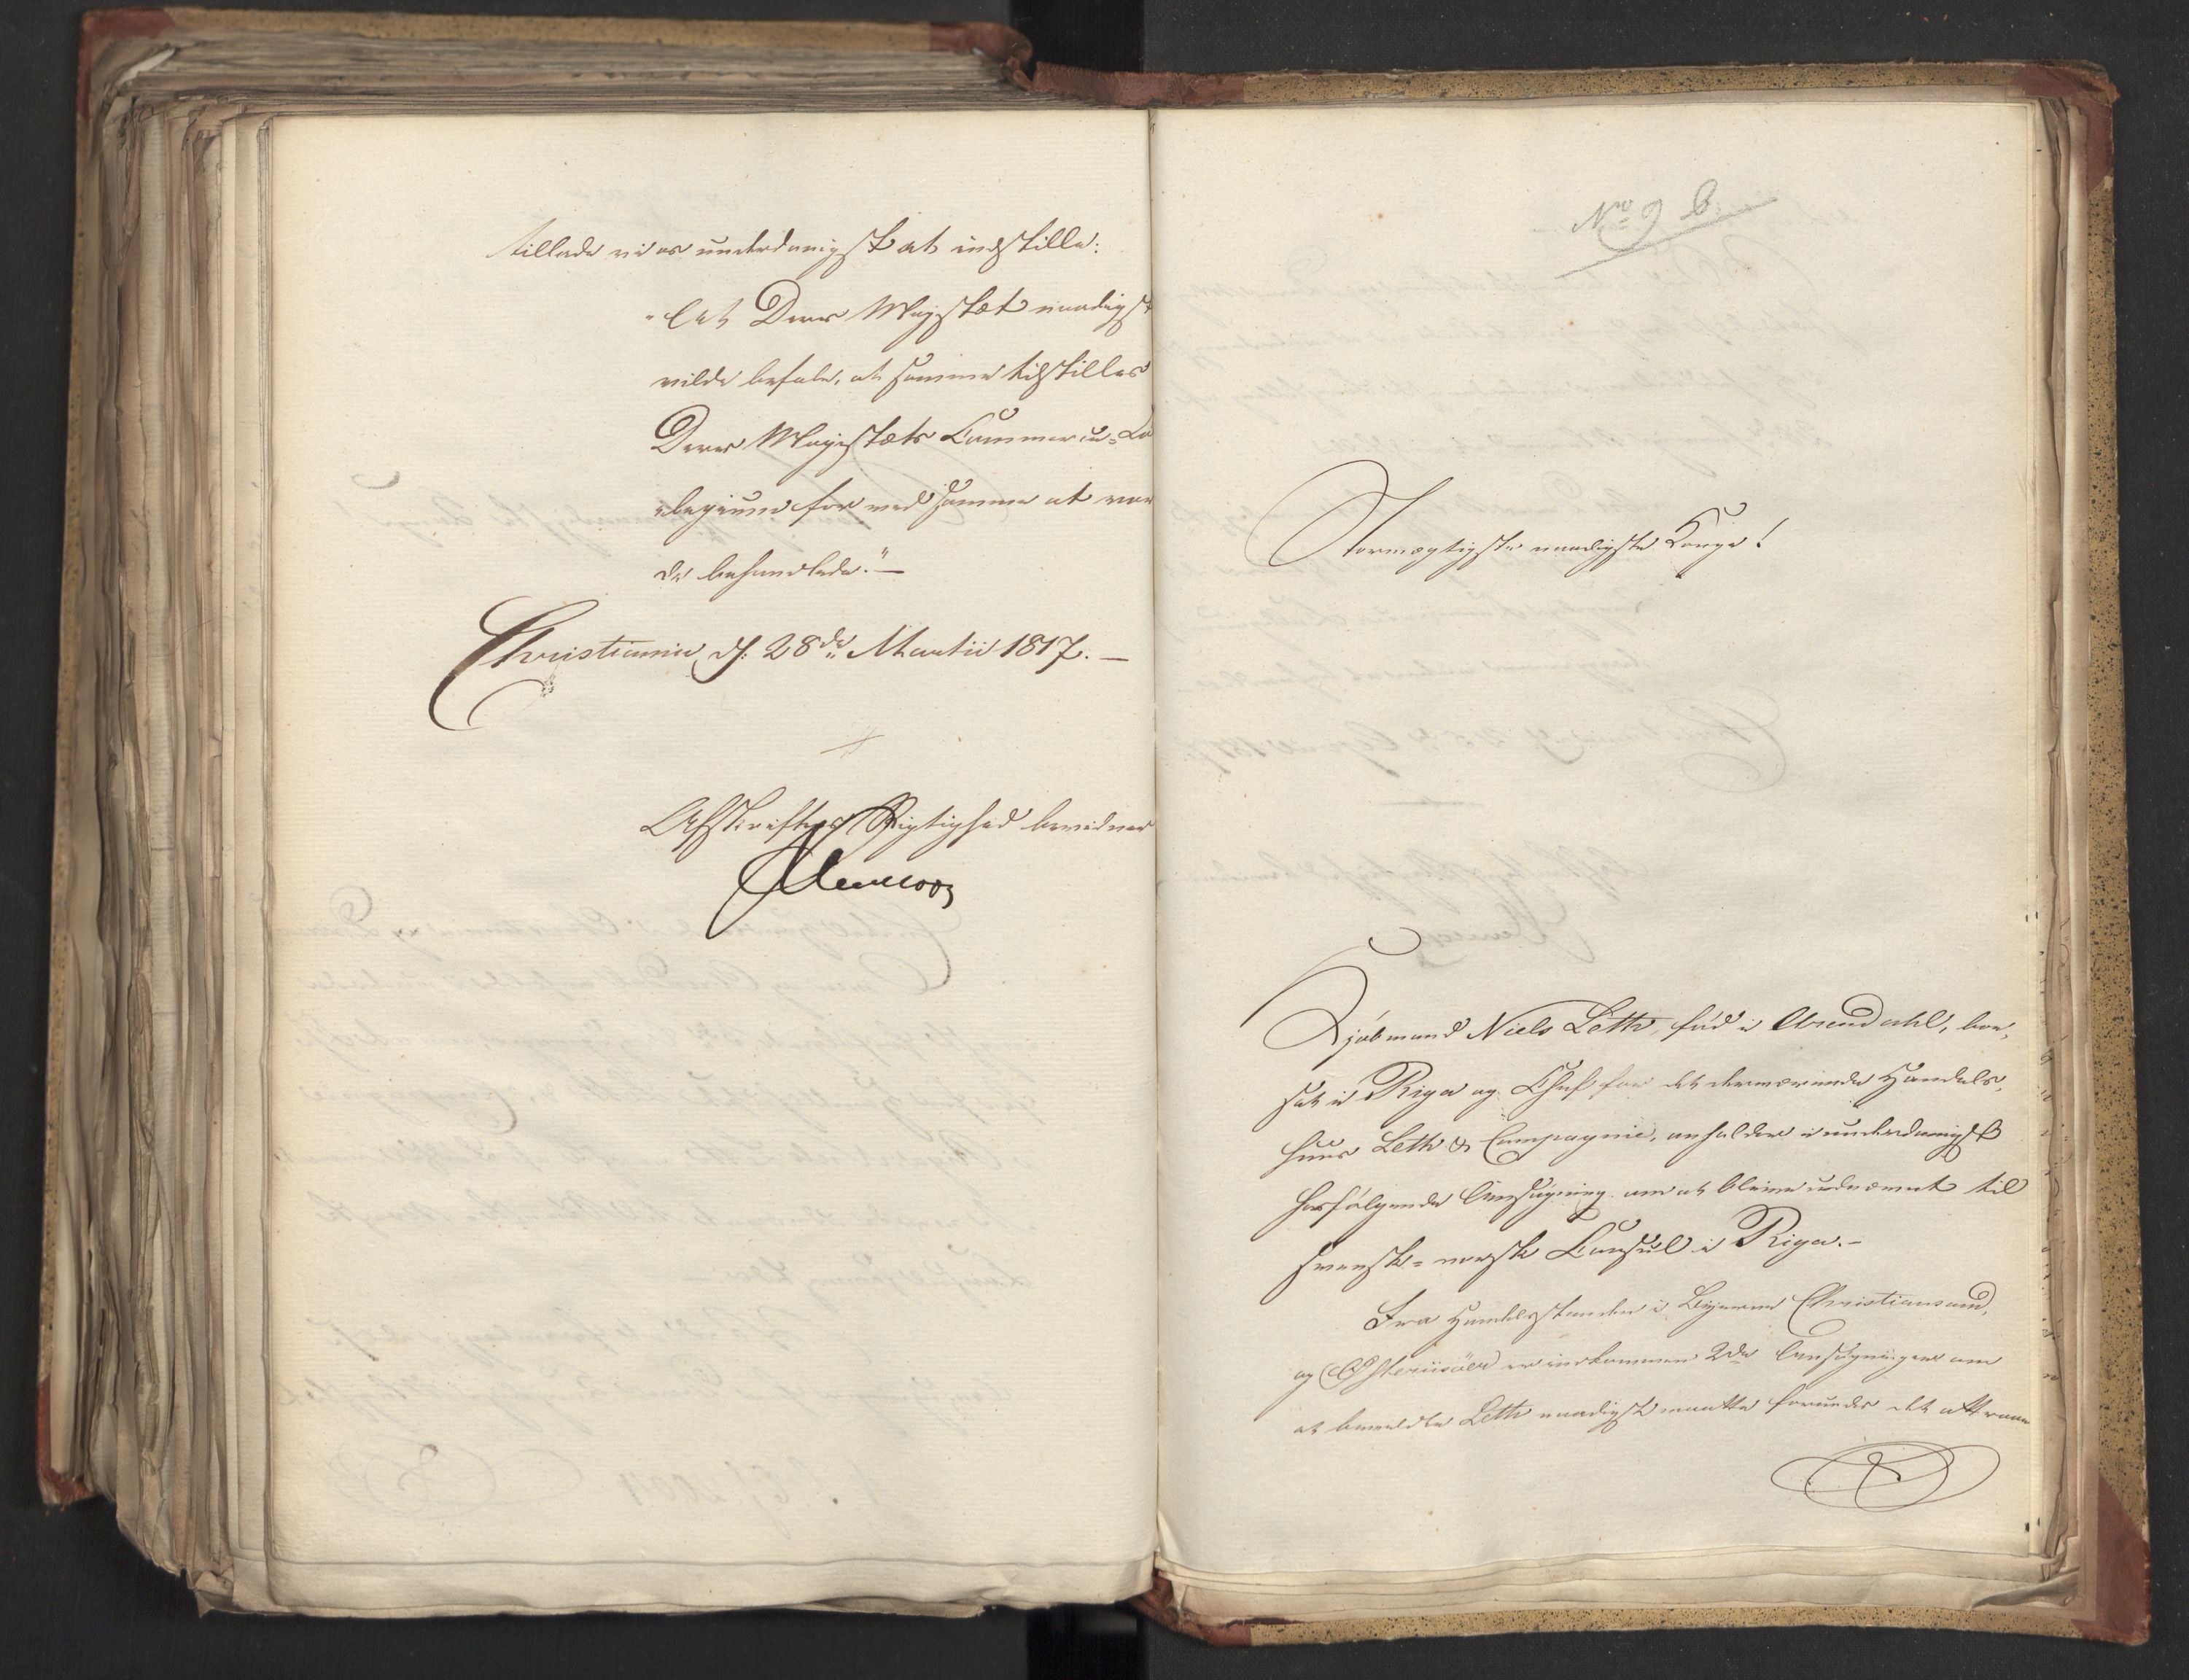 tillade vi os underdanigst at indstille:
"At Deres Majestæt naadigst
vilde befale, at samme tilstilles
Deres Majestæts Commerce-Co
llegium for med samme at vor
de behandlede."—
Christiania, d: 28de Martii 1817.—
Afskriftens Rigtighed bevidner
No 9 B.
Stormægtigste naadigste Konge!
Kjøbmand Niels Leth, fød i Arendahl, bo¬
sat i Riga og Chef for det derværende Handels¬
huus Leth & Compagnie, anholder i underdanigst
hosfølgende Ansøgning om at blive udnævnt til
svensk-norsk Consul i Riga.—
Fra Handelsstanden i Byerne Christiansand,
og Østeriisöer er indkommen 2de Ansøgninger om
at bemeldte Leth naadigst maatte forundes det attraae